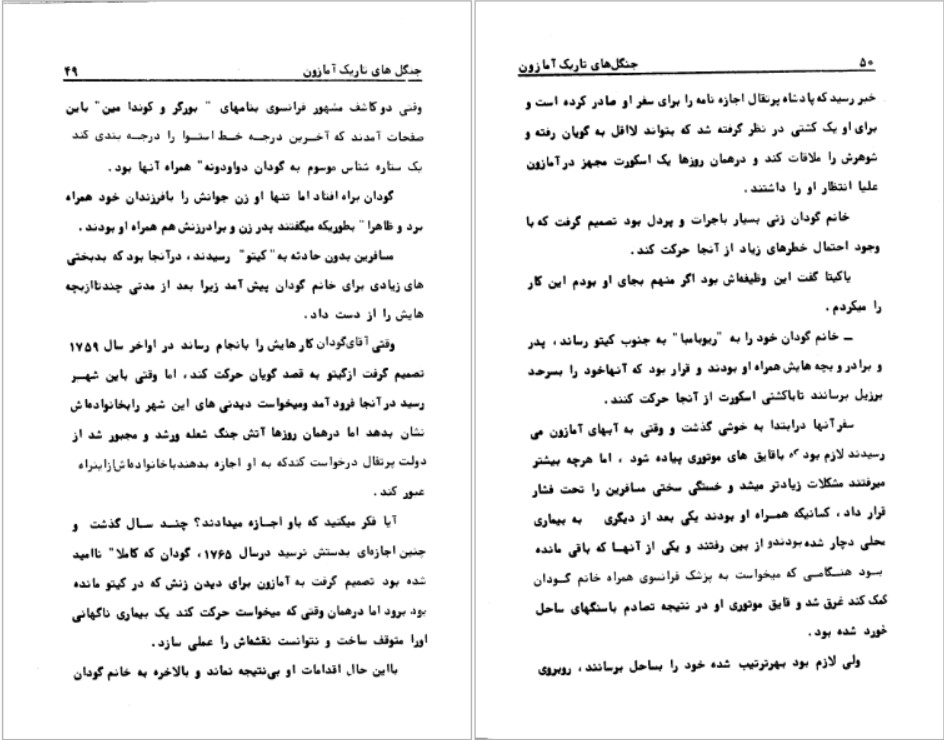 جنگل های تاریک آمازون ۴۹
وقتی دو کاشف مشهور فرانسوی بنامهای " بورگر و کوندا مین" باین
صفحات آمدند که آخرین درجه خط استوا را درجه بندی کند
یک ستاره شناس موسوم به گودان دواودونه" همراه آنها بود .
گودان براه افتاد اما تنها او زن جوانش را بافرزندان خود همراه
برد و ظاهرا" بطوریکه میگفتند پدر زن و برادرزنش هم همراه او بودند .
مسافرین بدون حادثه به" کیتو" رسیدند ، درآنجا بود که بدبختی
های زیادی برای خانم گودان پیش آمد زیرا بعد از مدتی چندتاازبچه
هایش را از دست داد .
وقتی آقای‌گودان کارهایش را بانجام رساند در اواخر سال ۱۷۵۹
تصمیم گرفت ازگیتو به قصد گویان حرکت کند ، اما وقتی باین شهر
رسید در آنجا فرود آمد ومیخواست دیدنی های این شهر رابخانواده‌اش
نشان بدهد اما درهمان روزها آتش جنگ شعله ورشد و مجبور شد از
دولت پرتقال درخواست کندکه به او اجازه بدهندباخانواده‌اش‌ازاینراه
عبور کند .
آیا فکر میکنید که باو اجازه میدادند؟ چند سال گذشت و
چنین اجازه‌ای بدستش نرسید درسال ۱۷۶۵ ، گودان که کاملا" ناامید
شده بود تصمیم گرفت به آمازون برای دیدن زنش که در کیتو مانده
بود برود اما درهمان وقتی که میخواست حرکت کند یک بیماری ناگهانی
اورا متوقف ساخت و نتوانست نقشه‌اش را عملی سازد .
بااین حال اقدامات او بی‌نتیجه نماند و بالاخره به خانم گودان
۵۰ جنگل‌های تاریک آمازون
خبر رسید که پادشاه پرتقال اجازه نامه را برای سفر او صادر کرده است و
برای او یک کشتی در نظر گرفته شد که بتواند لااقل به گویان رفته و
شوهرش را ملاقات کند و درهمان روزها یک اسکورت مجهز در آمازون
علیا انتظار او را داشتند .
خانم گودان زنی بسیار باجرات و پردل بود تصمیم گرفت که با
وجود احتمال خطرهای زیاد از آنجا حرکت کند .
یاکیتا گفت این وظیفه‌اش بود اگر منهم بجای او بودم این کار
را میکردم .
ــ خانم گودان خود را به "ریوبامبا" به جنوب کیتو رساند ، پدر
و برادر و بچه هایش همراه او بودند و قرار بود که آنهاخود را بسرحد
برزیل برسانند تاباکشتی اسکورت از آنجا حرکت کنند .
سفر آنها درابتدا به خوشی گذشت و وقتی به آبهای آمازون می
رسیدند لازم بود که باقایق های موتوری پیاده شود ، اما هرچه بیشتر
میرفتند مشکلات زیادتر میشد و خستگی سختی مسافرین را تحت فشار
قرار داد ، کسانیکه همراه او بودند یکی بعد از دیگری به بیماری
محلی دچار شده بودندو از بین رفتند و یکی از آنها که باقی مانده
بود هنگامی که میخواست به پزشک فرانسوی همراه خانم گودان
کمک کند غرق شد و قایق موتوری او در نتیجه تصادم باسنگهای ساحل
خورد شده بود .
ولی لازم بود بهرترتیب شده خود را بساحل برسانند ، روبروی